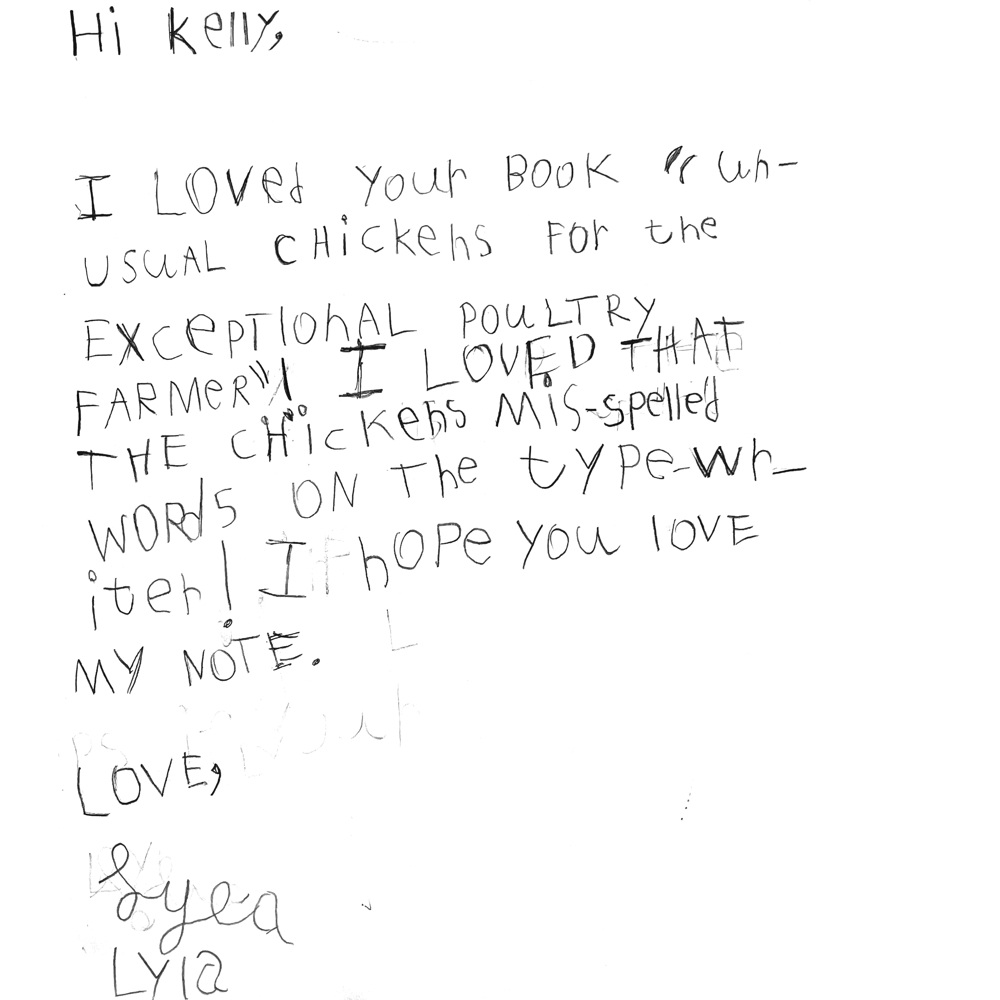 Hi Kelly,
I LOVed your BOOK "un-
usuAL CHickens For the
EXcePTIonAL POULTRY
FARMeR"! I LOVED THAT
THE CHickens Mis-spelled
WORds ON The type-wr-
iter! I hOPe you lOVE
MY NOTE.
LOVE,
Lyla
LYla